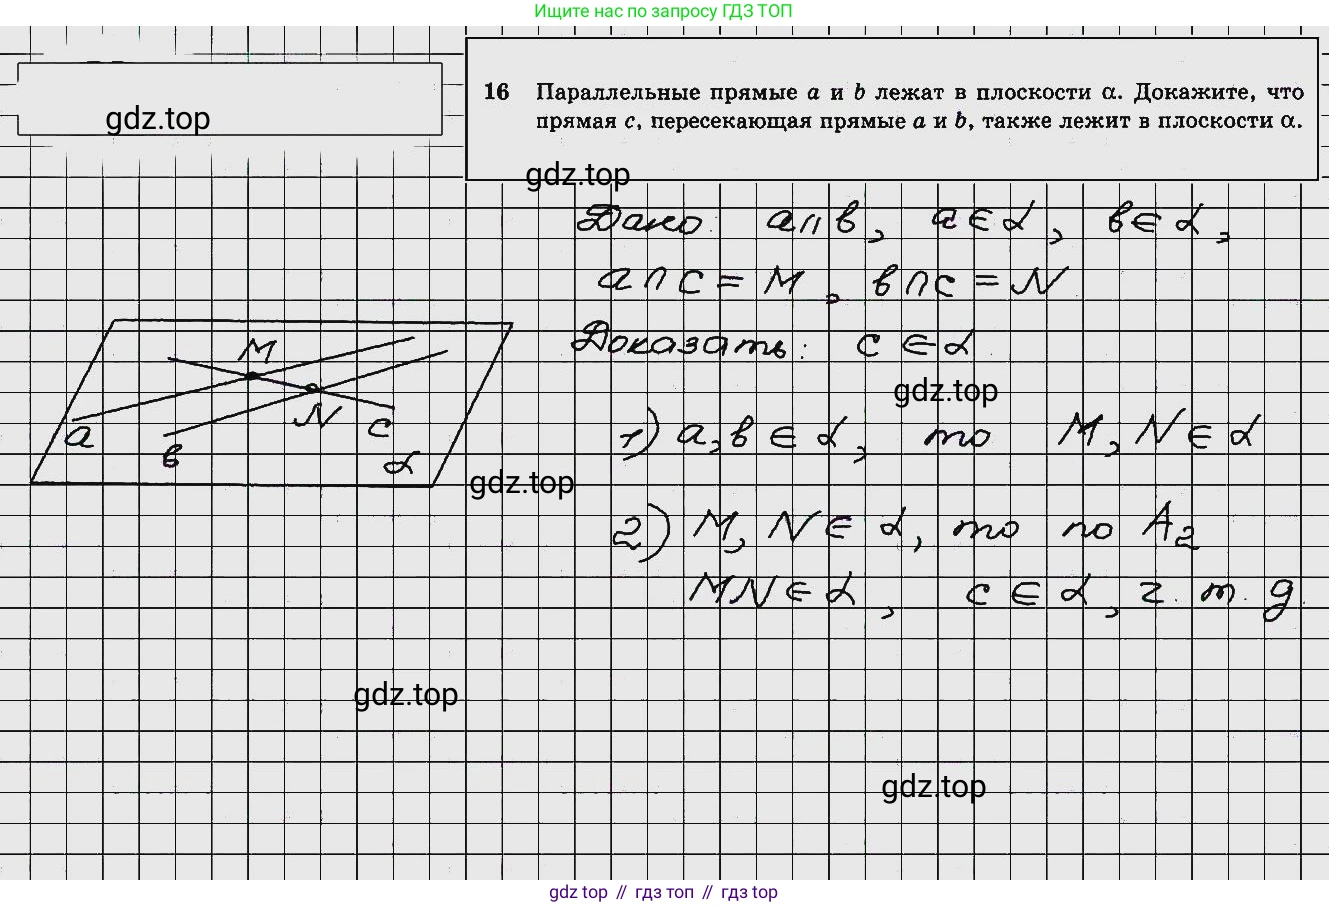 Ищите нас по запросу ГДЗ ТОП
gdz.top
16 Параллельные прямые a и b лежат в плоскости α. Докажите, что
прямая c, пересекающая прямые a и b, также лежит в плоскости α.
gdz.top
Дано: a || b, a ∈ α, b ∈ α,
a ∩ c = M, b ∩ c = N
Доказать: c ∈ α
gdz.top
M
N
a
b
c
α
1) a, b ∈ α, то M, N ∈ α
gdz.top
2) M, N ∈ α, то по A2
MN ∈ α, c ∈ α, г. т. д.
gdz.top
gdz.top
gdz top // гдз топ // гдз top